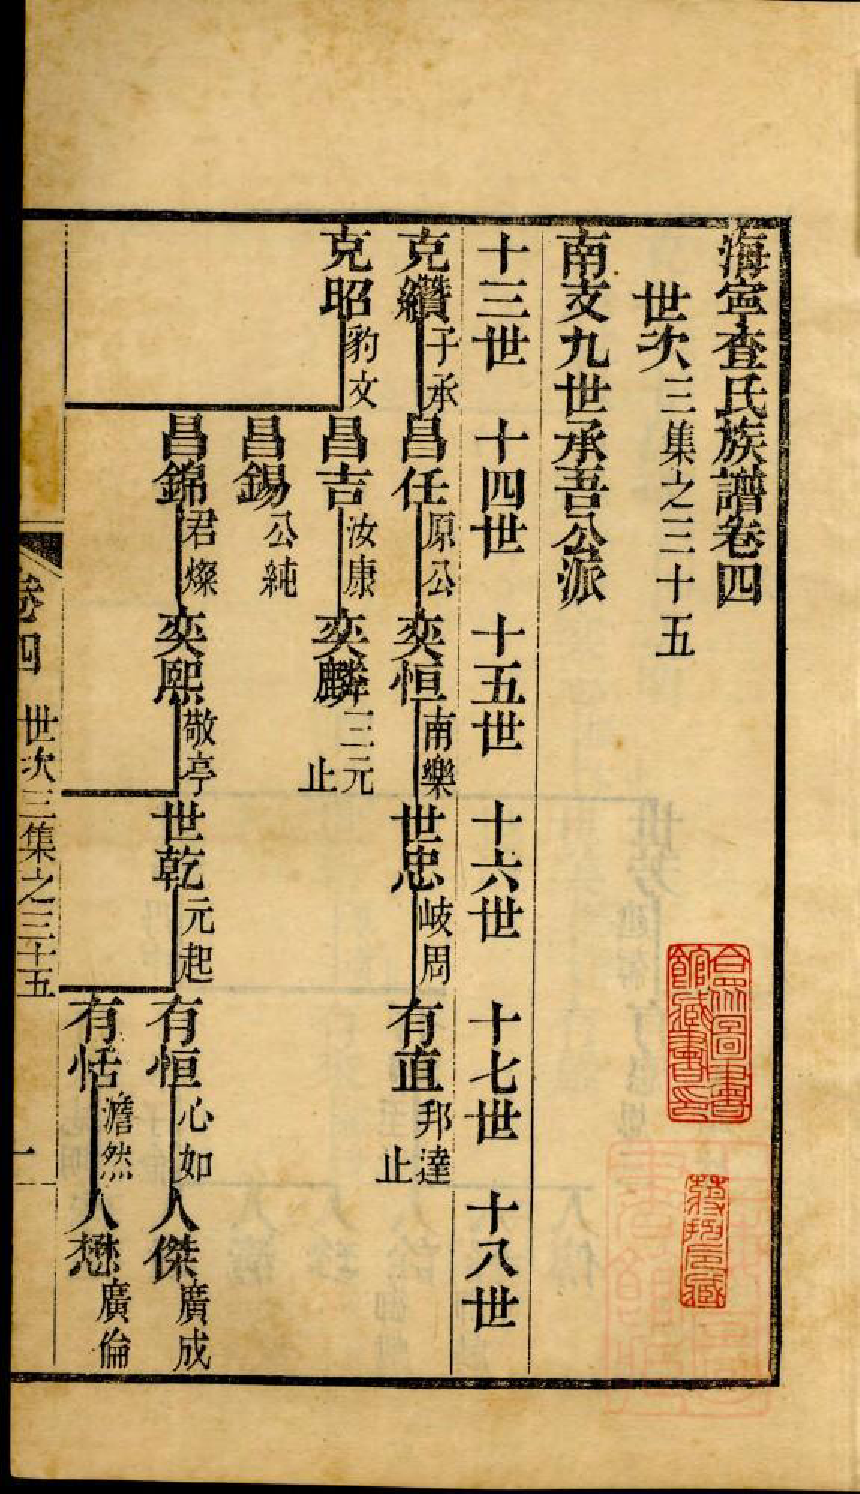 海寧查氏族譜卷四
世次三集之三十五
南支九世承吾公派
十三世 十四世 十五世 十六世 十七世 十八世
克纘子承 昌任原公 奕恒南樂 世忠岐周 有直邦達止
克昭豹文 昌吉汝康 奕麟三元止
昌錫公純
昌錦君燦 奕熙敬亭 世乾元起 有恒心如 人傑廣成
有恬澹然 人懋廣倫
卷四 世次三集之三十五 一
合眾圖書館藏書印